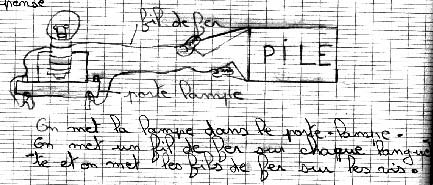 pense
fil de fer
PILE
porte lampe
On met la lampe dans le porte-lampe.
On met un fil de fer sur chaque languet
te et on met les fils de fer sur les vis.